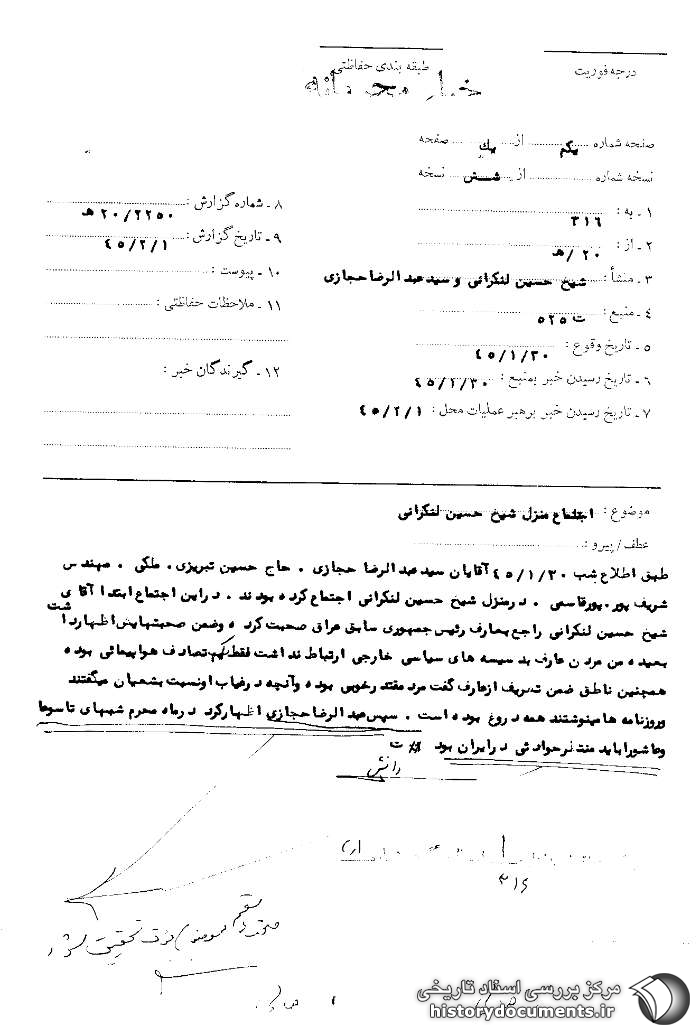 درجه فوریت
طبقه بندی حفاظتی
خیلی محرمانه
صفحه شماره یکم از یک صفحه
نسخه شماره از شش نسخه
۱ـ به : ۳۱۶
۲ـ از : ۲۰ / ه‍
۳ـ منشأ : شیخ حسین لنکرانی و سید عبدالرضا حجازی
۴ـ منبع : ت ۵۲۵
۵ـ تاریخ وقوع : ۴۵/۱/۳۰
۶ـ تاریخ رسیدن خبر بمنبع : ۴۵/۱/۳۰
۷ـ تاریخ رسیدن خبر برهبر عملیات محل : ۴۵/۲/۱
۸ـ شماره گزارش : ۲۰/۲۲۵۰ ه‍
۹ـ تاریخ گزارش : ۴۵/۲/۱
۱۰ـ پیوست :
۱۱ـ ملاحظات حفاظتی :
۱۲ـ گیرندگان خبر :
موضوع : اجتماع منزل شیخ حسین لنکرانی
عطف/پیرو :
طبق اطلاع شب ۴۵/۱/۳۰ آقایان سید عبدالرضا حجازی . حاج حسین تبریزی . ملکی . مهندس
شریف پور . پورقاسمی . در منزل شیخ حسین لنکرانی اجتماع کرده بودند . در این اجتماع ابتدا آقای
شیخ حسین لنکرانی راجع بعارف رئیس جمهوری سابق عراق صحبت کرده و ضمن صحبتهایش اظهار داشت
بعقیده من مردن عارف بدسیسه های سیاسی خارجی ارتباط نداشت فقط یکم تصادف هواپیمائی بوده
همچنین ناطق ضمن تعریف از عارف گفت مرد مقتدر خوبی بوده و آنچه در غیاب او نسبت بشعیان میگفتند
و روزنامه ها مینوشتند همه دروغ بوده است . سپس عبدالرضا حجازی اظهار کرد در ماه محرم شبهای تاسوعا
و عاشورا باید منتظر حوادثی در ایران بود ت
دانش
۳۱۶
تحقیق شود
مرکز بررسی اسناد تاریخی
historydocuments.ir